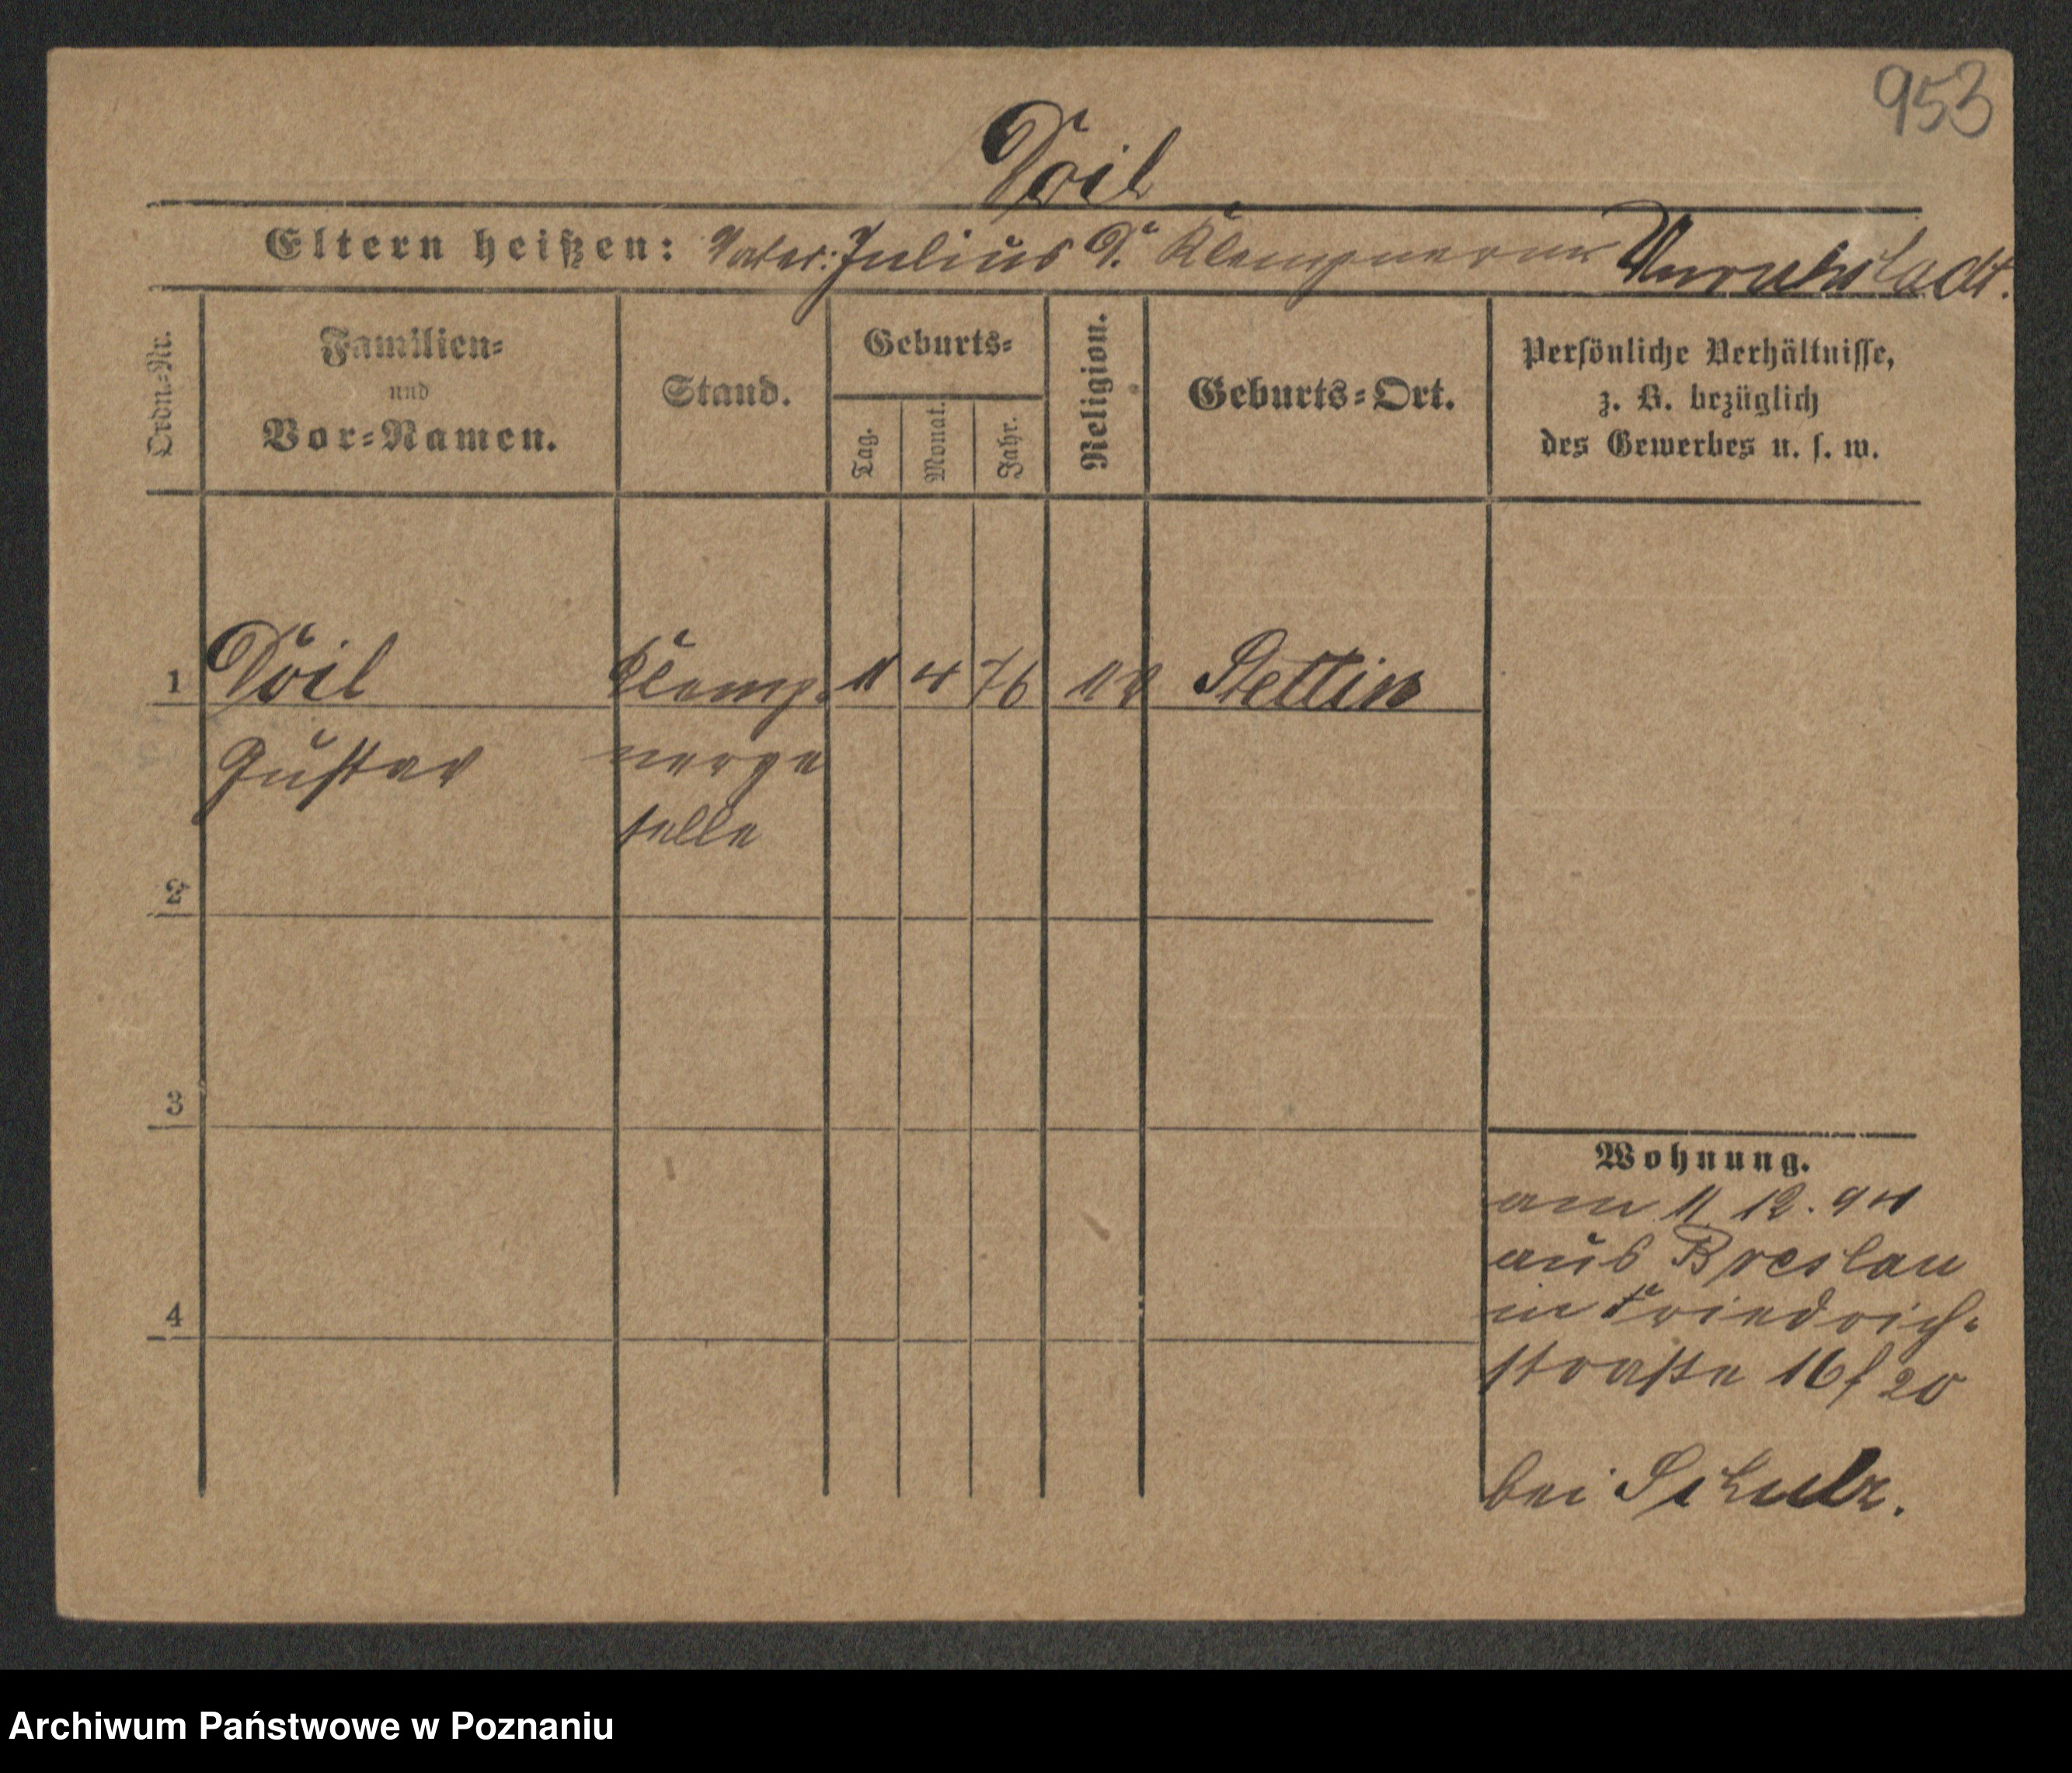 953
Doil
Eltern heißen: Vater: Julius D. Klempner aus Unruhstadt.
Ordn.-Nr.
Familien-
und
Vor-Namen.
Stand.
Geburts-
Tag.
Monat.
Jahr.
Religion.
Geburts-Ort.
Persönliche Verhältnisse,
z. B. bezüglich
des Gewerbes u. s. w.
1 Doil Klemp- 11 4 76 Stettin
Gustav nerge
selle
2
3
4
Wohnung.
am 11 12. 94
aus Breslau
in Friedrich-
straße 16 / 20
bei Schulz.
Archiwum Państwowe w Poznaniu